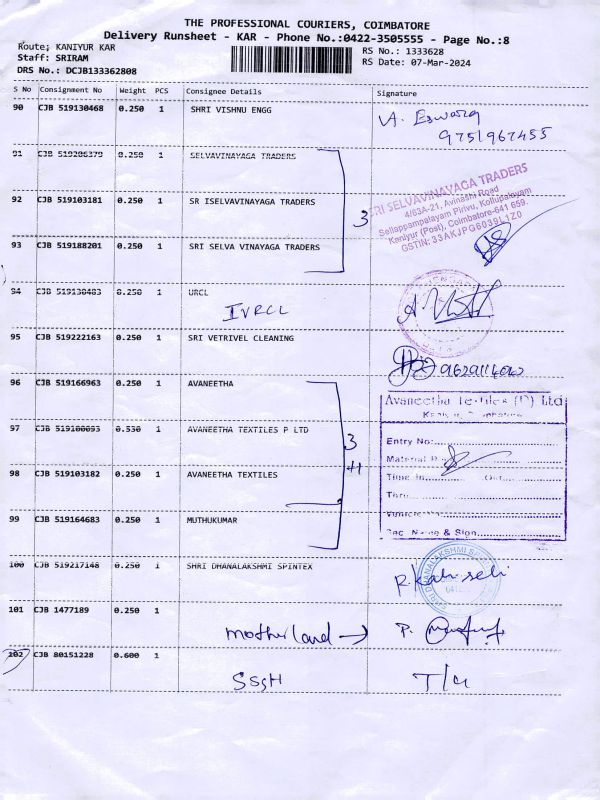 THE PROFESSIONAL COURIERS, COIMBATORE
Delivery Runsheet - KAR - Phone No.:0422-3505555 - Page No.:8
Route; KANIYUR KAR
RS No.: 1333628
Staff: SRIRAM
RS Date: 07-Mar-2024
DRS No.: DCJB133362808
S No Consignment No Weight PCS Consignee Details Signature
90 CJB 519130468 0.250 1 SHRI VISHNU ENGG
9751967455
91 CJB 519206379 0.250 1 SELVAVINAYAGA TRADERS
SRI SELVAVINAYAGA TRADERS
4/63A-21, Avinashi Road
Sellappampalayam Pirivu, Kollupalayam
Kaniyur (Post), Coimbatore-641 659.
GSTIN: 33AKJPG6039L1Z0
92 CJB 519103181 0.250 1 SR ISELVAVINAYAGA TRADERS
3
93 CJB 519188201 0.250 1 SRI SELVA VINAYAGA TRADERS
94 CJB 519130483 0.250 1 URCL
IVRCL
95 CJB 519222163 0.250 1 SRI VETRIVEL CLEANING
96 CJB 519166963 0.250 1 AVANEETHA
Avaneetha Textiles (P) Ltd
97 CJB 519100093 0.530 1 AVANEETHA TEXTILES P LTD
3
+1
Entry No:
Material
Time In Out
98 CJB 519103182 0.250 1 AVANEETHA TEXTILES
99 CJB 519164683 0.250 1 MUTHUKUMAR
Sec. Name & Sign
100 CJB 519217148 0.250 1 SHRI DHANALAKSHMI SPINTEX
101 CJB 1477189 0.250 1
motherland →
102 CJB 80151228 0.600 1
SSSH